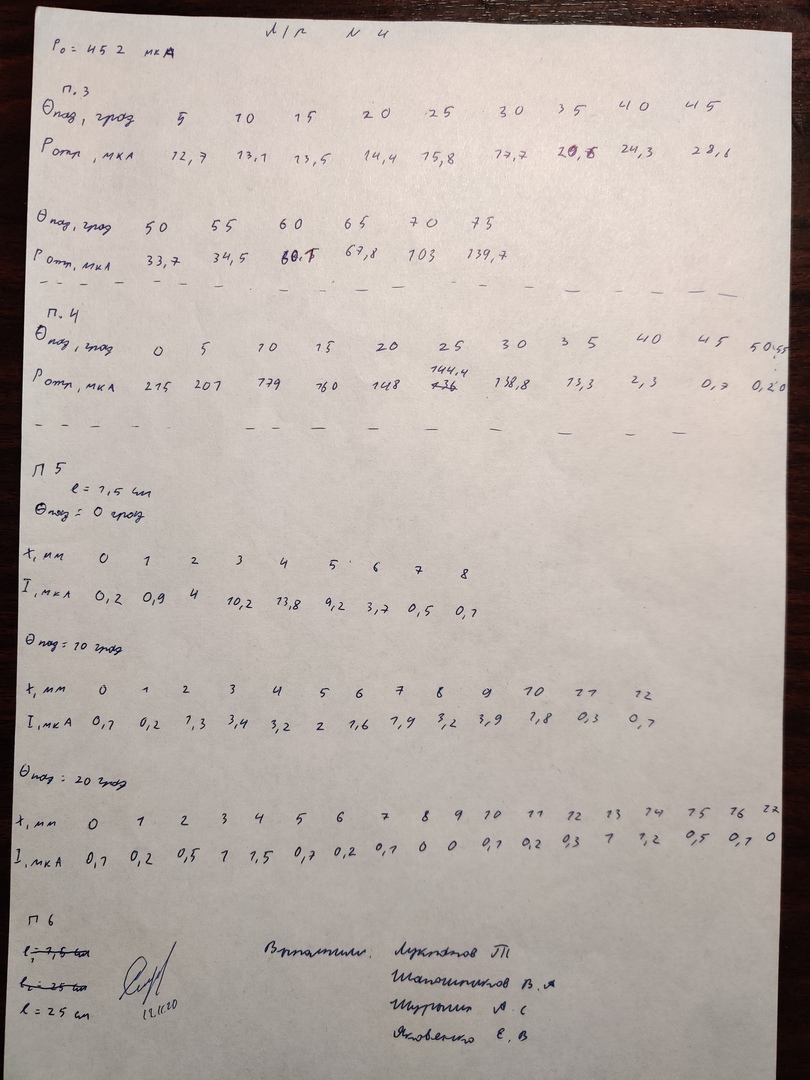 Л/р N 4
P₀ = 452 мкА
п.3
Θпад, град 5 10 15 20 25 30 35 40 45
Pотр, мкА 12,7 13,1 13,5 14,4 15,8 17,7 24,3 28,6
Θпад, град 50 55 60 65 70 75
Pотр, мкА 33,7 34,5 67,8 103 139,7
п.4
Θпад, град 0 5 10 15 20 25 30 35 40 45 50 55
Pотр, мкА 215 201 179 160 148 144,4 138,8 13,3 2,3 0,7 0,2 0
П 5
l = 1,5 см
Θпад = 0 град
x, мм 0 1 2 3 4 5 6 7 8
I, мкА 0,2 0,9 4 10,2 13,8 9,2 3,7 0,5 0,1
Θпад = 10 град
x, мм 0 1 2 3 4 5 6 7 8 9 10 11 12
I, мкА 0,1 0,2 1,3 3,4 3,2 2 1,6 1,9 3,2 3,9 1,8 0,3 0,1
Θпад = 20 град
x, мм 0 1 2 3 4 5 6 7 8 9 10 11 12 13 14 15 16 17
I, мкА 0,1 0,2 0,5 1 1,5 0,7 0,2 0,1 0 0 0,1 0,2 0,3 1 1,2 0,5 0,1 0
П 6
l = 7,5 см
l₂ = 25 см
l = 25 см
12.11.20
Выполнили: Лукманов Т
Шапошников В.А
Шурыгин А С
Яковенко Е. В